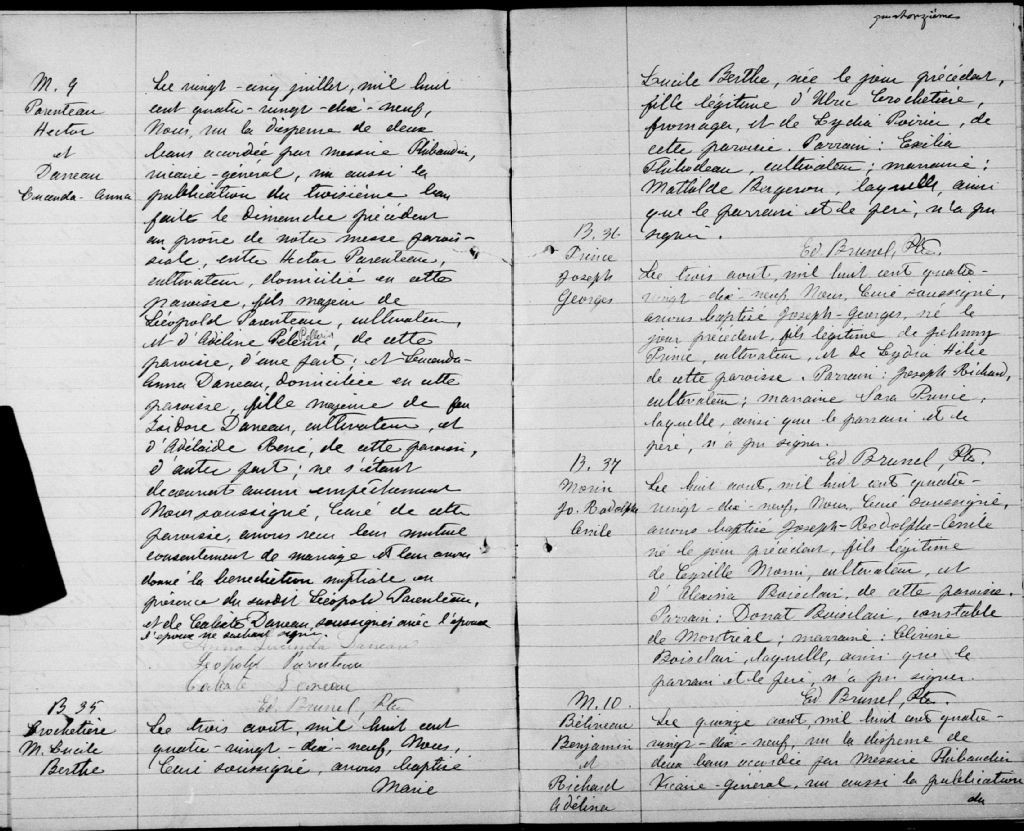 M. 9
Parenteau
Hector
et
Daneau
Lucenda-Anna
Le vingt-cinq juillet, mil huit
cent quatre-vingt-dix-neuf,
Nous, vu la dispense de deux
bans accordée par messire Thibaudin,
vicaire-général, vu aussi la
publication du troisième ban
faite le Dimanche précédent
au prône de notre messe parois-
siale, entre Hector Parenteau,
cultivateur, domicilié en cette
paroisse, fils majeur de
Léopold Parenteau, cultivateur,
et d'Adéline Pélerin, de cette
paroisse, d'une part; et Lucenda-
Anna Daneau, domiciliée en cette
paroisse, fille majeure de feu
Isidore Daneau, cultivateur, et
d'Adélaide René, de cette paroisse,
d'autre part; ne s'étant
découvert aucun empêchement
Nous, soussigné, Curé de cette
paroisse, avons reçu leur mutuel
consentement de mariage et leur avons
donné la bénédiction nuptiale en
présence du susdit Léopold Parenteau,
et de Calixte Daneau, soussignés avec l'épouse
l'époux ne sachant signer.
Anna Lucinda Daneau
Léopold Parenteau
Calixte Daneau
Ed. Brunel, Ptre
B 35
Crochetière
M. Lucile
Berthe
Le trois aout, mil huit cent
quatre-vingt-dix-neuf, Nous,
Curé soussigné, avons baptisé
Marie
quatorzième
Lucile Berthe, née le jour précédent,
fille légitime d'Ulric Crochetière,
fromager, et de Lydia Poirier, de
cette paroisse. Parrain: Exilia
Thibodeau, cultivateur; marraine:
Mathilde Bergeron, laquelle, ainsi
que le parrain et le père, n'a pu
signer.
Ed Brunel, Ptre.
B. 36
Prince
Joseph
Georges
Le trois aout, mil huit cent quatre-
vingt-dix-neuf, Nous, Curé soussigné,
avons baptisé Joseph-Georges, né le
jour précédent, fils légitime de Johnny
Prince, cultivateur, et de Lydia Hélie
de cette paroisse. Parrain: Joseph Richard,
cultivateur; marraine Sara Prince,
laquelle, ainsi que le parrain et le
père, n'a pu signer.
Ed Brunel, Ptre.
B. 37
Morin
Jo. Rodolphe
Emile
Le huit aout, mil huit cent quatre-
vingt-dix-neuf, Nous, Curé soussigné,
avons baptisé Joseph-Rodolphe-Emile
né le jour précédent, fils légitime
de Cyrille Morin, cultivateur, et
d'Alexina Boisclair, de cette paroisse.
Parrain: Donat Boisclair, constable
de Montréal; marraine:
Boisclair, laquelle, ainsi que le
parrain et le père, n'a pu signer.
Ed Brunel, Ptre.
M. 10.
Béliveau
Benjamin
et
Richard
Adélina
Le quinze aout, mil huit cent quatre-
vingt-dix-neuf, vu la dispense de
deux bans accordée par Messire Thibaudin
Vicaire-général, vu aussi la publication
du